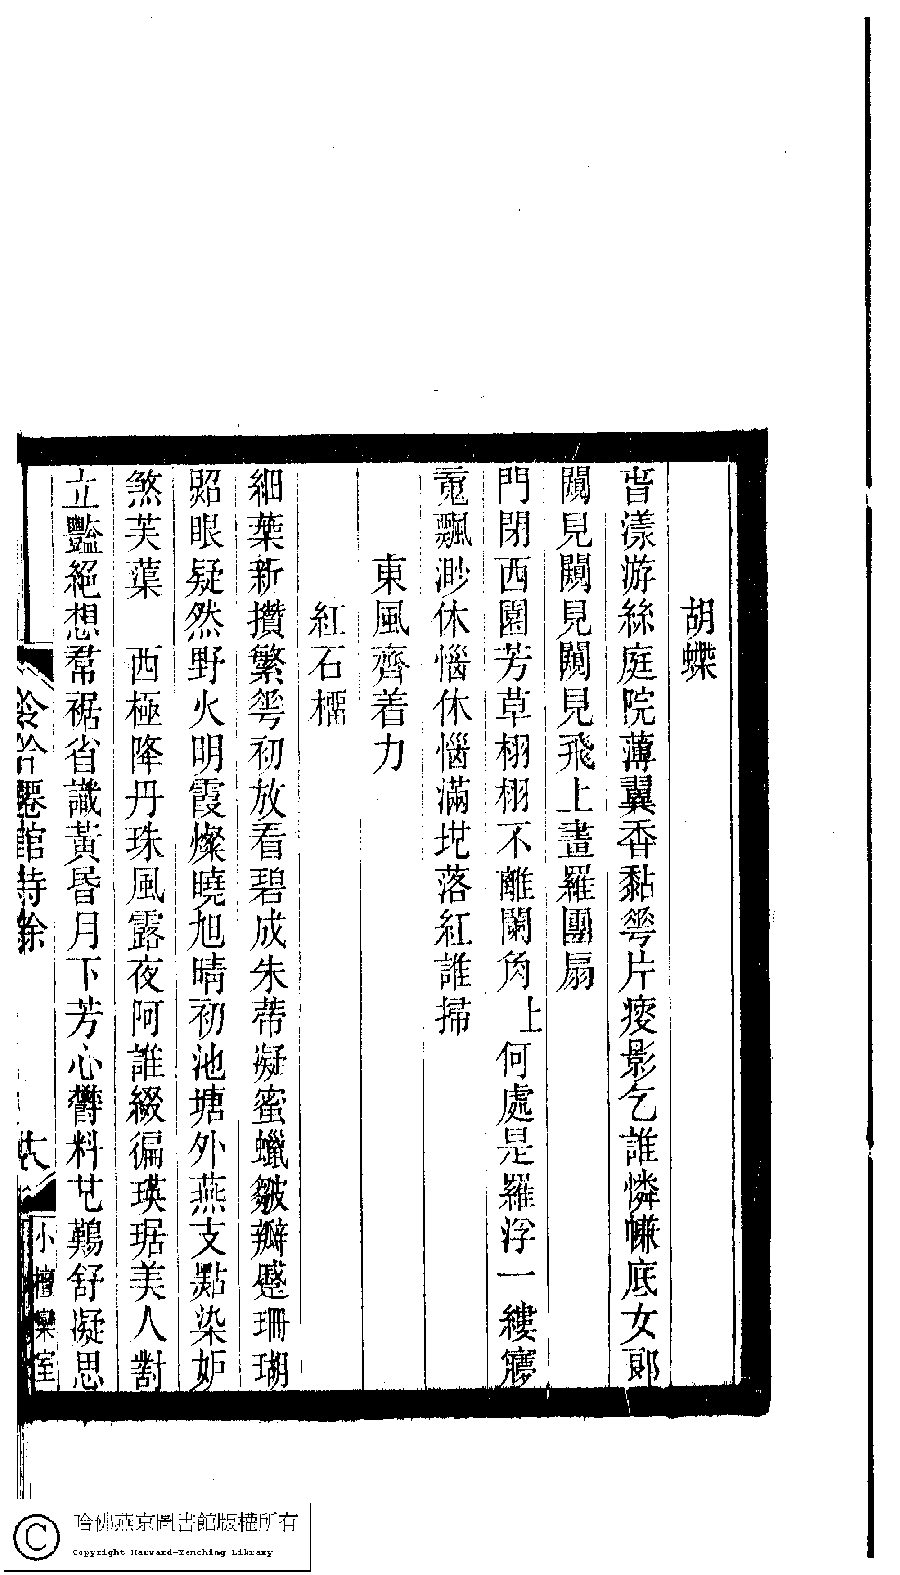 胡蝶
旹漾游絲庭院薄翼香黏蕚片痩影乞誰憐㡘底女郞
闌見闌見闌見飛上畫羅團扇
門閉西園芳草栩栩不離闌角上何處是羅浮一縷㝱
䰟飄渺休惱休惱滿地落紅誰掃
東風齊着力
紅石榴
細葉新攢繁蕚初放看碧成朱蔕凝蜜蠟皺瓣蹙珊瑚
照眼疑然野火明霞燦曉旭晴初池塘外燕支點染妒
煞芙蕖 西極降丹珠風露夜阿誰綴徧瑛琚美人對
立豔絕想帬裾省識黃昏月下芳心鬱料也難舒凝思
館詩餘
小檀欒室
哈佛燕京圖書館版權所有
Copyright Harvard-Yenching Library